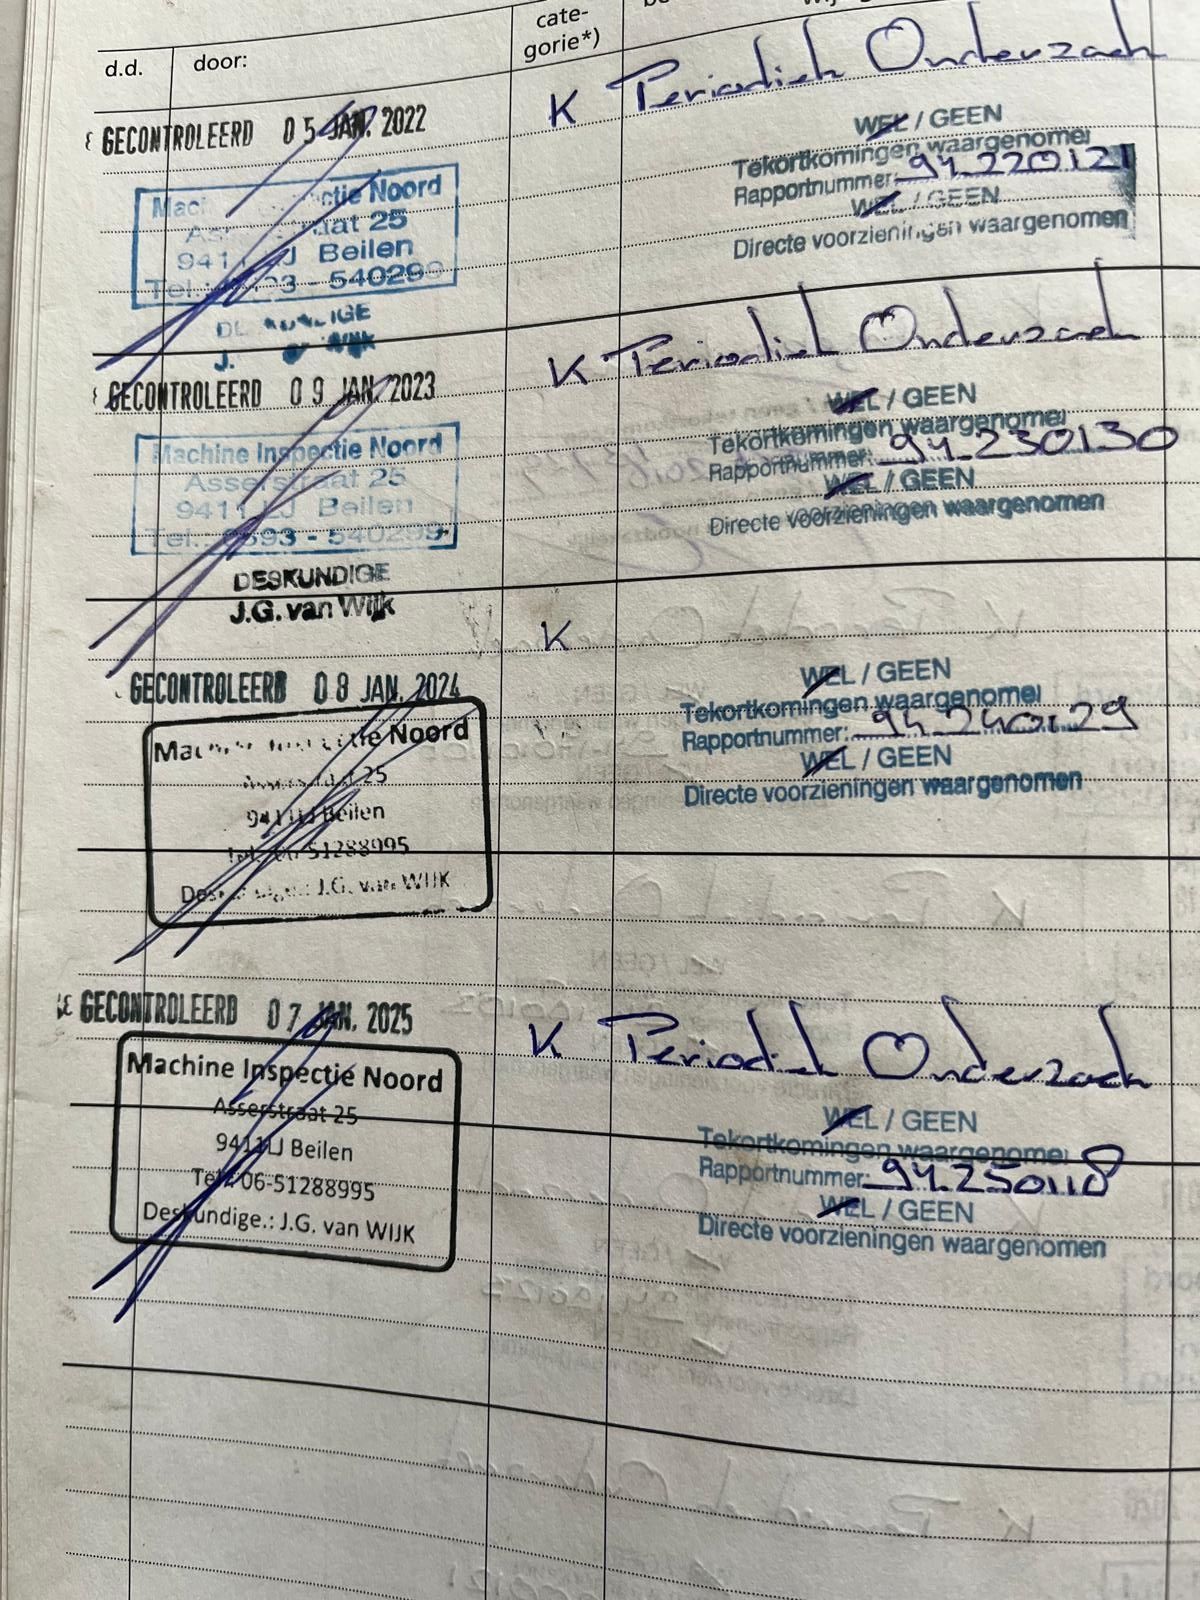 d.d.
door:
cate-
gorie*)
GECONTROLEERD 05 JAN. 2022
K Periodiek Onderzoek
WEL / GEEN
Tekortkomingen waargenomen
Rapportnummer: 94.220121
WEL / GEEN
Directe voorzieningen waargenomen
Noord
25
Beilen
- 540299
GECONTROLEERD 09 JAN. 2023
K Periodiek Onderzoek
WEL / GEEN
Tekortkomingen waargenomen
Rapportnummer: 94.230130
WEL / GEEN
Directe voorzieningen waargenomen
Machine Inspectie Noord
Asserstraat 25
9411 LJ Beilen
Tel.: 0593 - 540299
DESKUNDIGE
J.G. van Wijk
K
GECONTROLEERD 08 JAN. 2024
WEL / GEEN
Tekortkomingen waargenomen
Rapportnummer: 94.240129
WEL / GEEN
Directe voorzieningen waargenomen
Noord
25
9411LJ Beilen
Tel.: 06-51288995
J.G. van WIJK
GECONTROLEERD 07 JAN. 2025
K Periodiek Onderzoek
WEL / GEEN
Tekortkomingen waargenomen
Rapportnummer: 94.250118
WEL / GEEN
Directe voorzieningen waargenomen
Machine Inspectie Noord
Asserstraat 25
9411LJ Beilen
Tel.: 06-51288995
Deskundige.: J.G. van WIJK